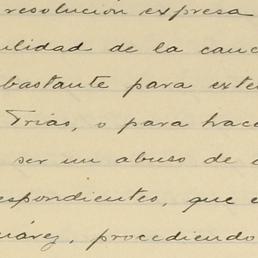 resolución expresa
ulidad de la cauc
bastante para exte
Trías, o para hace
ser un abuso de
spondientes, que
uárez, procediendo